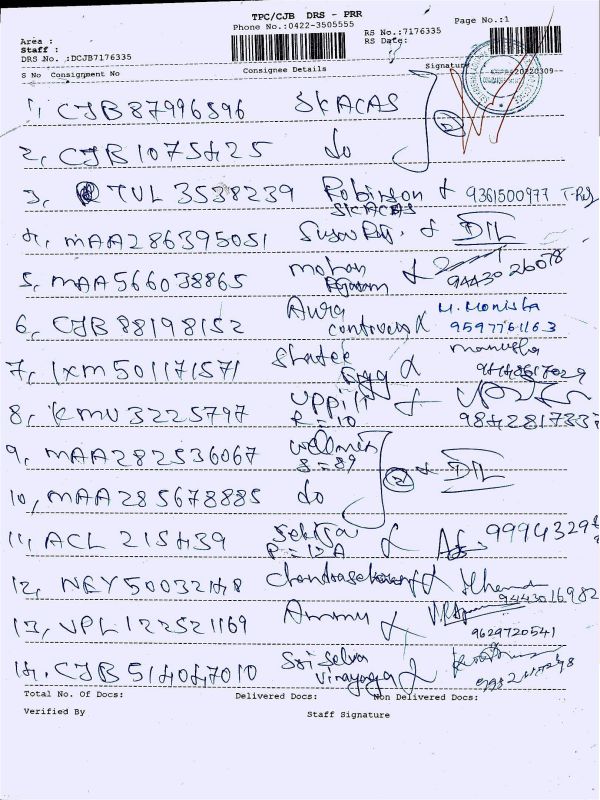 TPC/CJB DRS - PRR
Phone No.:0422-3505555
Page No.:1
RS No.:7176335
RS Date:
Area :
Staff :
DRS No. :DCJB7176335
S No Consignment No Consignee Details Signature 20220309
1, CJB87996896 SKACAS
2, CJB1075425 do 2
3, TVL 3538239 Robinson 9361500977
SKACAS
4, MAA286395051 DIL
5, MAA566038865 Mohan 9443026078
6, CJB 88198152 Aura M. Monisha
9597761163
7, IXM501171571
8, KMU3225797 UPPili
R=10
9, MAA282536067 Wellness
S=89
10, MAA285678885 do 2 DIL
11, ACL 215439
P=12A
12, NEY50032148 Chandrasekaran 9443016982
13, VPL122521169 Ammu 9629720541
14, CJB514047010 Sri Selva
Vinayaga
Total No. Of Docs: Delivered Docs: Non Delivered Docs:
Verified By Staff Signature